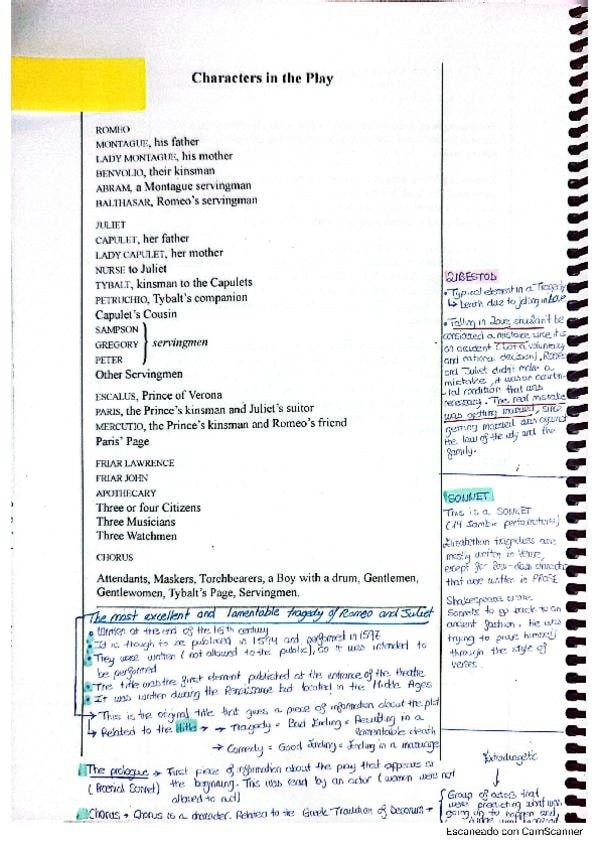 Characters in the Play
ROMEO
MONTAGUE, his father
LADY MONTAGUE, his mother
BENVOLIO, their kinsman
ABRAM, a Montague servingman
BALTHASAR, Romeo's servingman
JULIET
CAPULET, her father
LADY CAPULET, her mother
NURSE to Juliet
TYBALT, kinsman to the Capulets
PETRUCHIO, Tybalt's companion
Capulet's Cousin
SAMPSON
GREGORY
PETER
servingmen
Other Servingmen
ESCALUS, Prince of Verona
PARIS, the Prince's kinsman and Juliet's suitor
MERCUTIO, the Prince's kinsman and Romeo's friend
Paris' Page
FRIAR LAWRENCE
FRIAR JOHN
APOTHECARY
Three or four Citizens
Three Musicians
Three Watchmen
CHORUS
Attendants, Maskers, Torchbearers, a Boy with a drum, Gentlemen,
Gentlewomen, Tybalt's Page, Servingmen.
LIBESTOD
• Typical element in a Tragedy
↳ Death due to falling in love
• Falling in love shouldn't be
considered a mistake since it is
an accident (not a voluntary
and rational decision). Romeo
and Juliet didn't make a
mistake, it was an
condition that was
necessary. The real mistake
was getting married, since
getting married was against
the law of the city and the
family.
SONNET
This is a SONNET
(14 Iambic pentameters)
Elizabethan tragedies are
mostly written in Verse,
except for low-class characters
that were written in PROSE
Shakespeare wrote
Sonnets to go back to an
ancient fashion. He was
trying to prove himself
through the style of
verses.
The most excellent and lamentable tragedy of Romeo and Juliet
• Written at the end of the 16th century
• It is though to be published in 1594 and performed in 1597
• They were written (not allowed to the public), so it was intended to
be performed
• The title was the first element published at the entrance of the theatre
• It was written during the Renaissance but located in the Middle Ages
→ This is the original title that gives a piece of information about the plot
↳ Related to the title → → Tragedy = Bad Ending = Resulting in a
lamentable death
→ Comedy = Good Ending = Ending in a marriage
The prologue → First piece of information about the play that appears at
the beginning. This was read by an actor (women were not
allowed to act)
Sonnet)
Chorus → Chorus is a character. Related to the Greek Tradition of Decorum →
Extradiegetic
Group of actors that
were predicting what was
going up to happen and
Escaneado con CamScanner